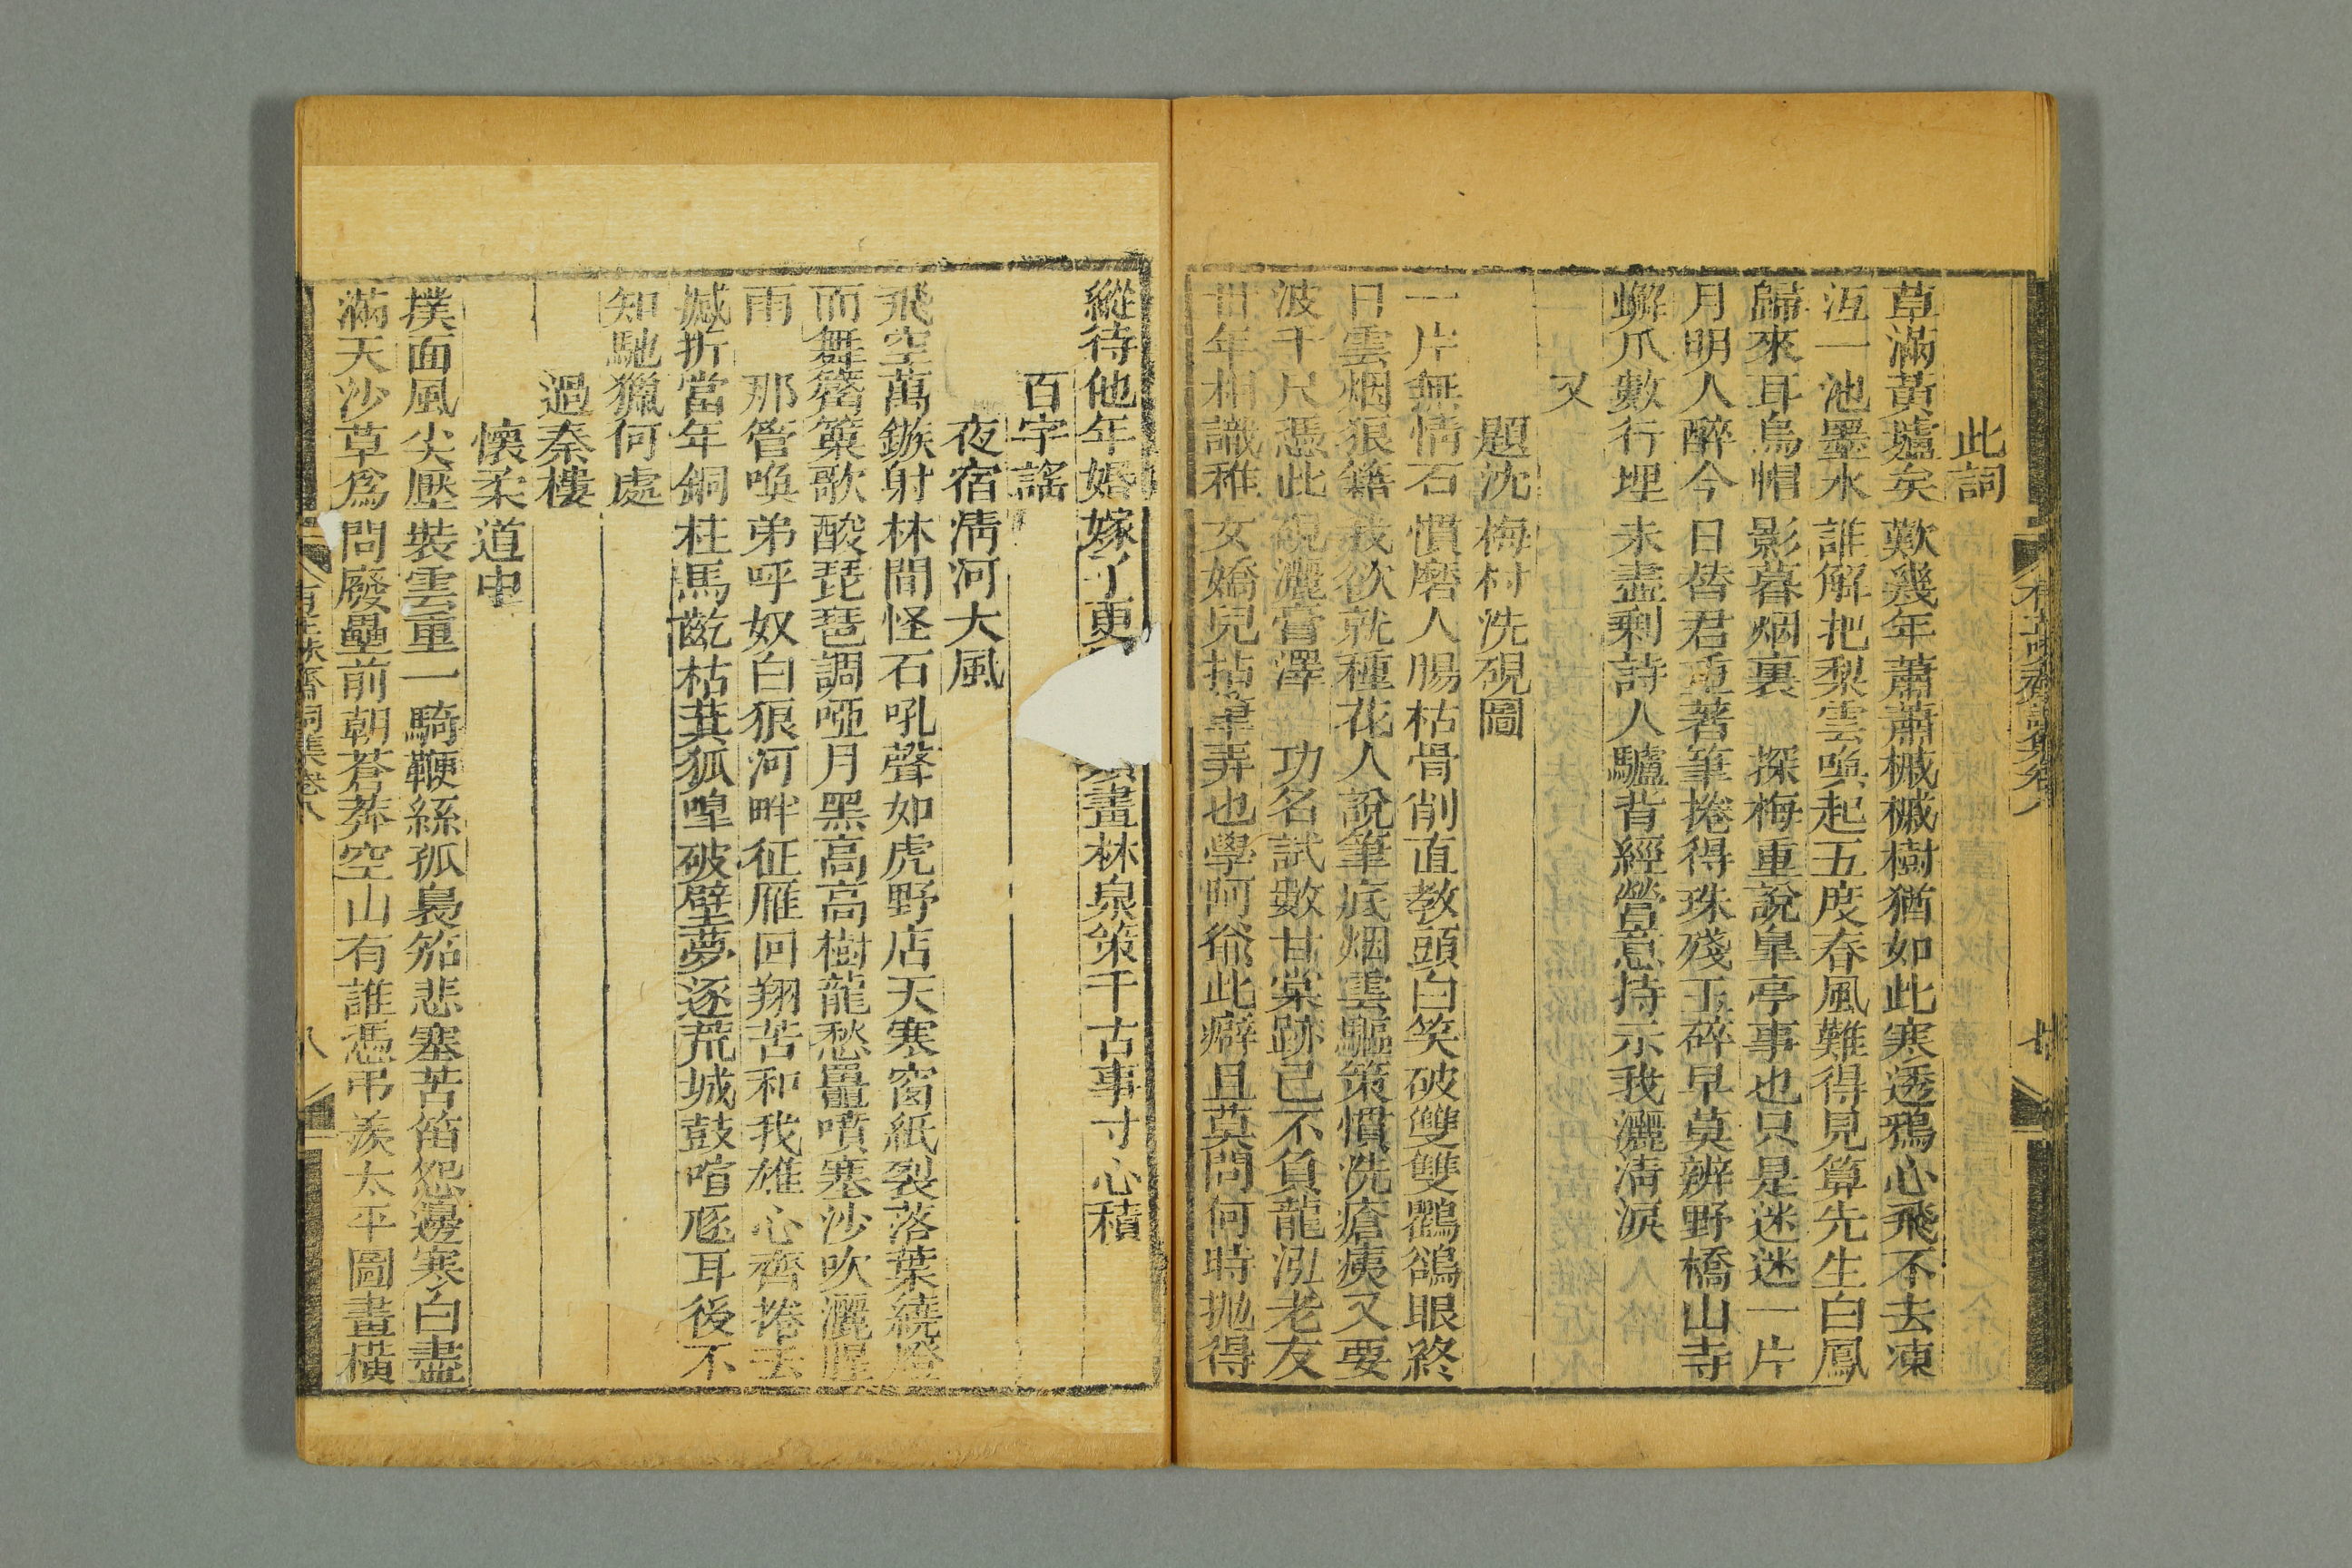 此詞
草滿黃壚矣歎幾年蕭蕭槭槭樹猶如此寒透鴉心飛不去凍
沍一池墨水誰解把梨雲喚起五度春風難得見算先生白鳳
歸來耳烏帽影暮烟裏　探梅重說皐亭事也只是迷迷一片
月明人醉今日昝君重著筆捲得珠殘玉碎早莫辨野橋山寺
蠏爪數行埋未盡剩詩人驢背經營意持示我灑淸淚
又
題沈梅村洗硯圖
一片無情石慣磨人腸枯骨削直教頭白笑破雙雙鸜鵒眼終
日雲烟狼籍我欲就種花人說筆底烟雲驅策慣洗瘡痍又要
波千尺憑此硯灑膏澤　功名試數甘棠跡已不負龍泓老友
卄年相識稚女嬌兒拈筆弄也學阿爺此癖且莫問何時拋得
縱待他年婚嫁了更畫林泉策千古事寸心積
百字謠
夜宿淸河大風
飛空萬鏃射林間怪石吼聲如虎野店天寒窗紙裂落葉繞燈
而舞觱篥歌酸琵琶調啞月黑高高樹龍愁鼉噴塞沙吹灑腥
雨　那管喚弟呼奴白狼河畔征雁回翔苦和我雄心齊捲去
撼折當年銅柱馬齕枯萁狐嘷破壁夢逐荒城鼓喧豗耳後不
知馳獵何處
過秦樓
懷柔道中
撲面風尖壓裝雲重一騎鞭絲孤裊笳悲塞苦笛怨邊寒白盡
滿天沙草爲問廢壘前朝蒼莽空山有誰憑弔羨太平圖畫橫
八